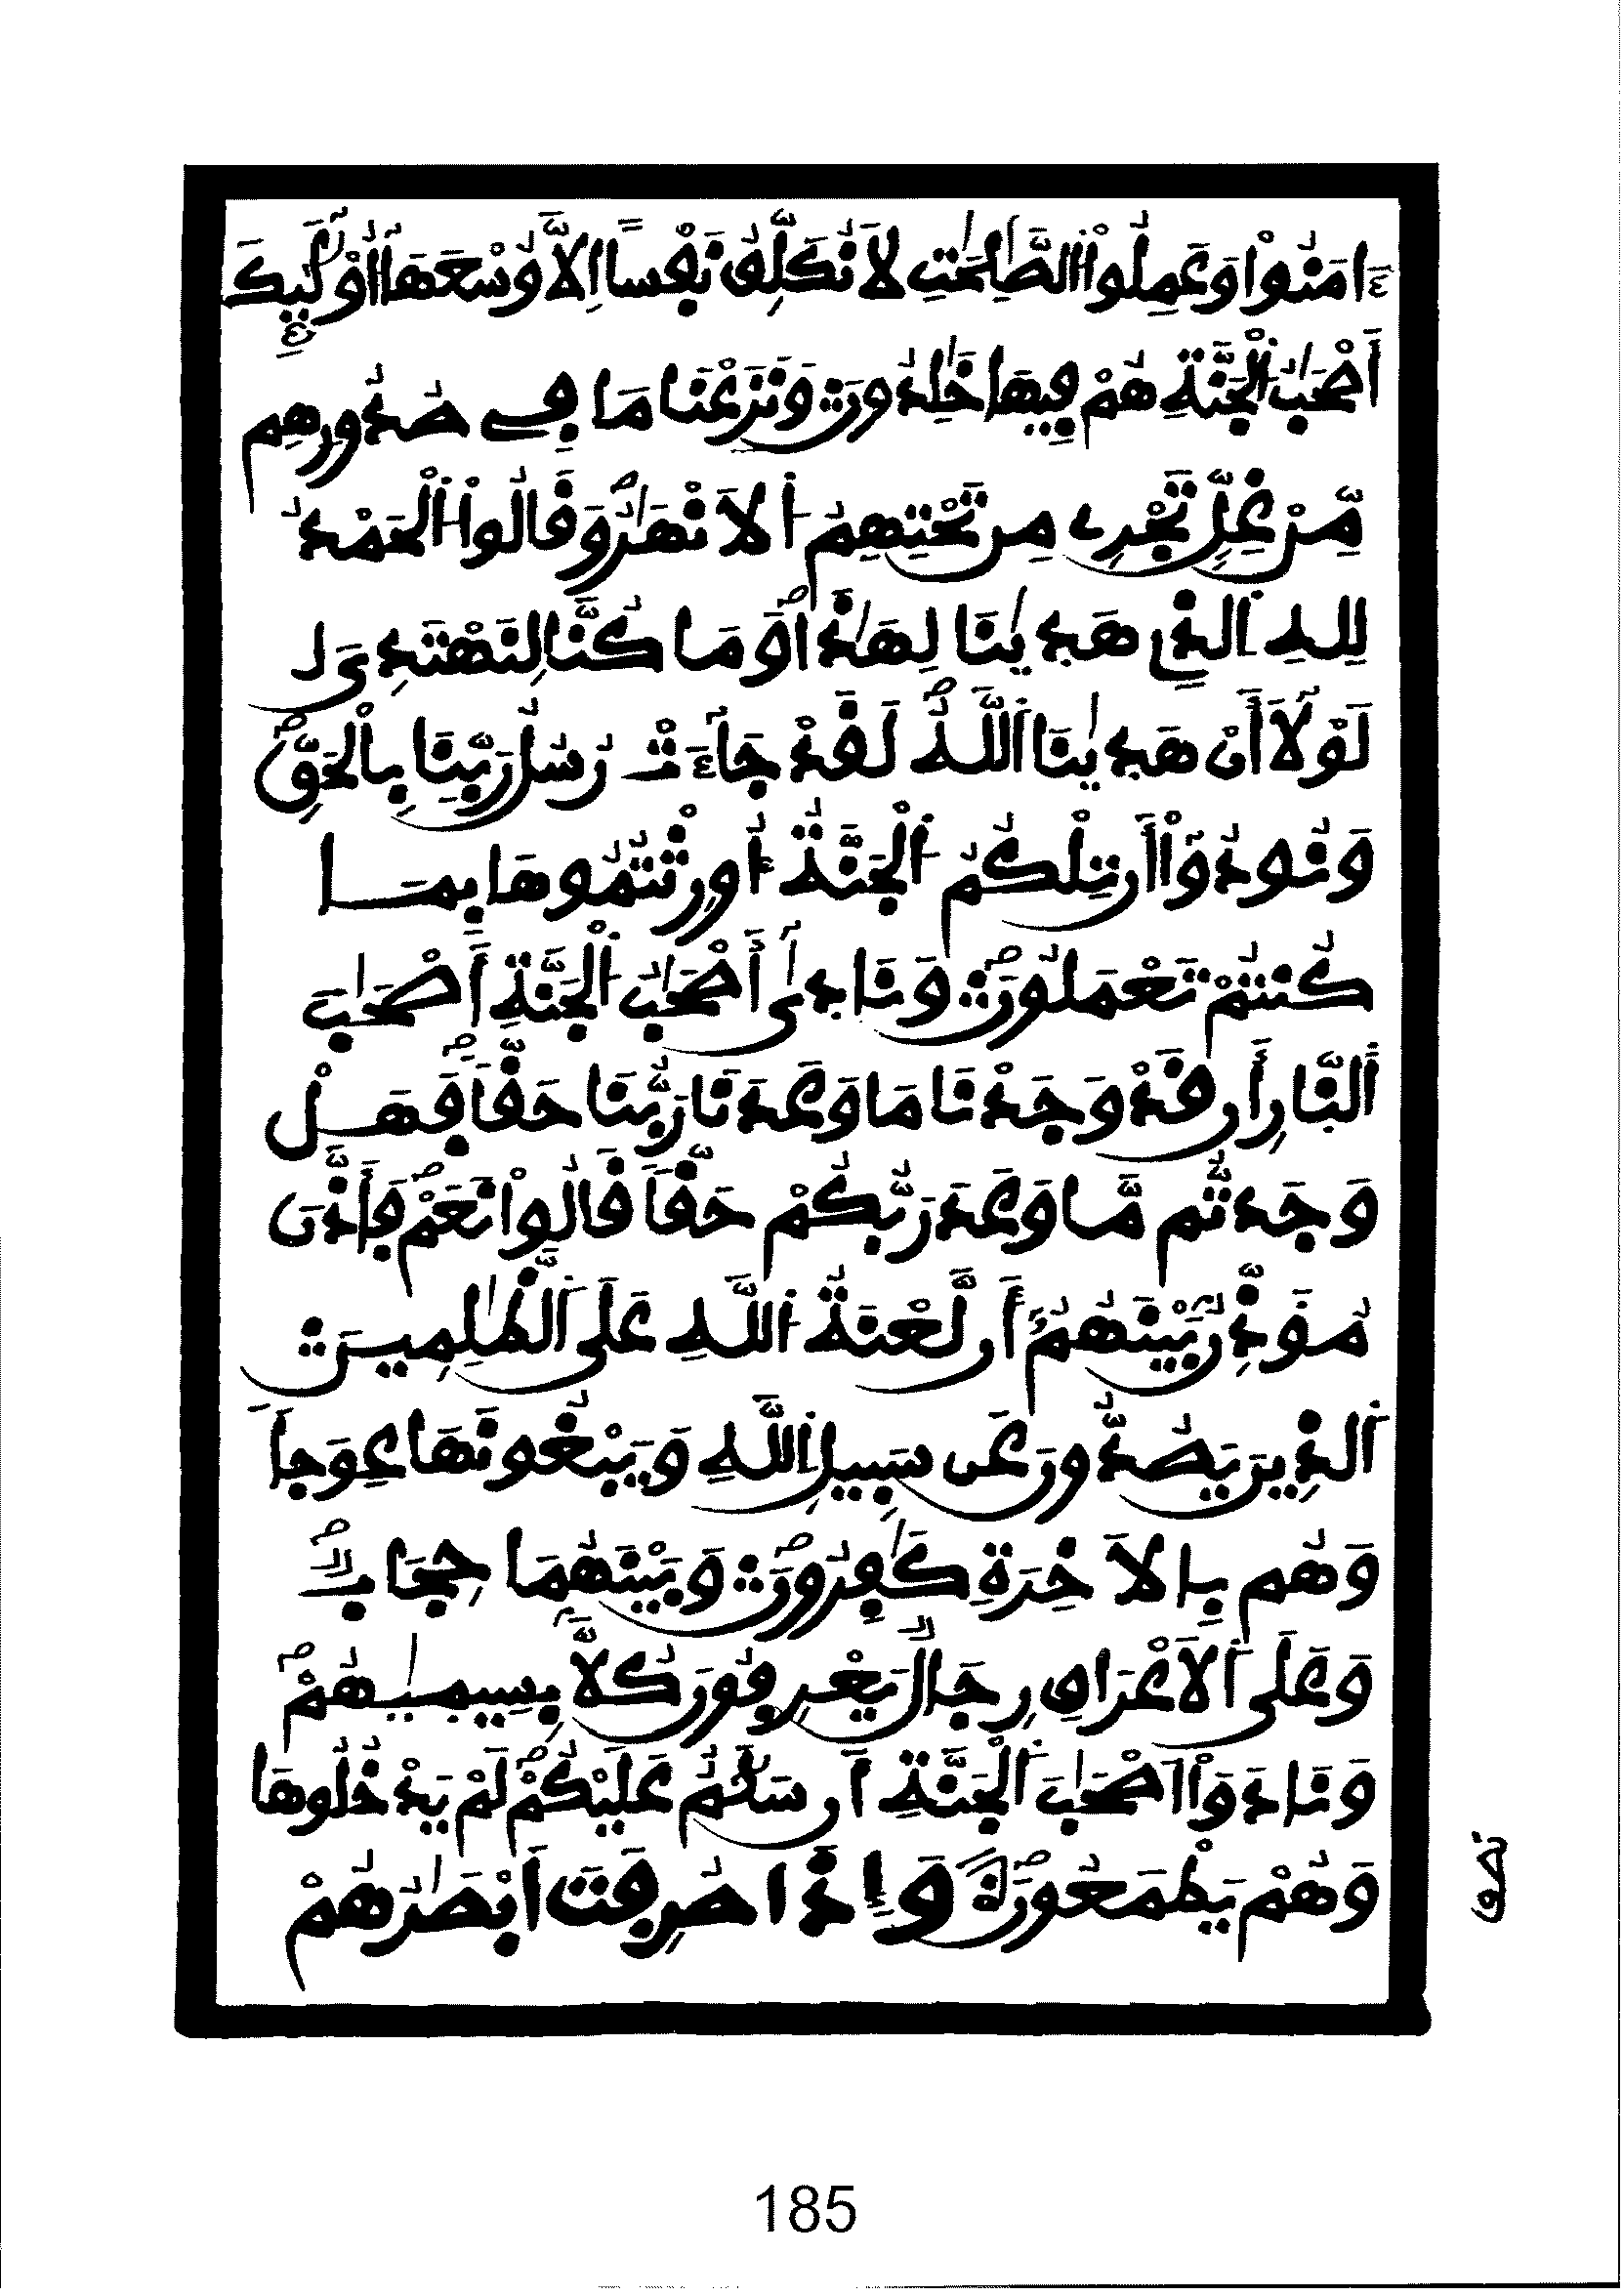 ءَامَنُواْ وَعَمِلُواْ الصَّٰلِحَٰتِ لَا نُكَلِّفُ نَفْساً اِلَّا وُسْعَهَا أُوْلَٰٓئِكَ
أَصْحَٰبُ الْجَنَّةِ هُمْ فِيهَا خَٰلِدُونَ وَنَزَعْنَا مَا فِے صُدُورِهِم
مِّنْ غِلٍّ تَجْرِے مِن تَحْتِهِمُ الَانْهَٰرُ وَقَالُواْ الْحَمْدُ
لِلهِ الذِے هَدٜىٰنَا لِهَٰذَا وَمَا كُنَّا لِنَهْتَدِيَ
لَوْلَا أَنْ هَدٜىٰنَا اَللَّهُ لَقَدْ جَآءَتْ رُسُلُ رَبِّنَا بِالْحَقِّ
وَنُودُوٓاْ أَن تِلْكُمُ الْجَنَّةُ أُورِثْتُمُوهَا بِمَا
كُنتُمْ تَعْمَلُونَ وَنَادٜىٰٓ أَصْحَٰبُ الْجَنَّةِ أَصْحَٰبَ
اَلنَّارِ أَن قَدْ وَجَدْنَا مَا وَعَدَنَا رَبُّنَا حَقّاً فَهَلْ
وَجَدتُّم مَّا وَعَدَ رَبُّكُمْ حَقّاً قَالُواْ نَعَمْ فَأَذَّنَ
مُؤَذِّنٌ بَيْنَهُمُ أَن لَّعْنَةُ اللَّهِ عَلَى اَلظَّٰلِمِينَ
اَلذِينَ يَصُدُّونَ عَن سَبِيلِ اِللَّهِ وَيَبْغُونَهَا عِوَجاً
وَهُم بِالَاخِرَةِ كَٰفِرُونَ وَبَيْنَهُمَا حِجَابٌ
وَعَلَى اَلَاعْرَافِ رِجَالٌ يَعْرِفُونَ كُلّاً بِسِيمٜىٰهُمْ
وَنَادَوَاْ اَصْحَٰبَ اَلْجَنَّةِ أَن سَلَٰمٌ عَلَيْكُمْ لَمْ يَدْخُلُوهَا
وَهُمْ يَطْمَعُونَ وَإِذَا صُرِفَتَ اَبْصَٰرُهُمْ
نصف
185